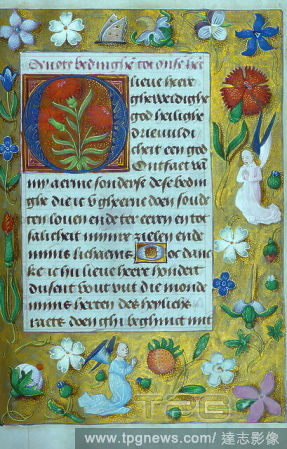 Divote bedinghe tot onse heer
O lieue heere
gheweldighe
god heilighe
drieuuldi
cheit een god
Ontfaet van
my arme sondersse dese bedin
ghe die ic v gheerne doen soude
ten louen ende ter eeren en tot
salicheit mijnre zielen ende
mijns lichaems O oe dan
ke ic hu lieue heere hondert
dusent vout vut die monde
mijns herten des heylichs
raets doen ghi beghinct mit
TPG
www.tpgnews.com/ 達志影像